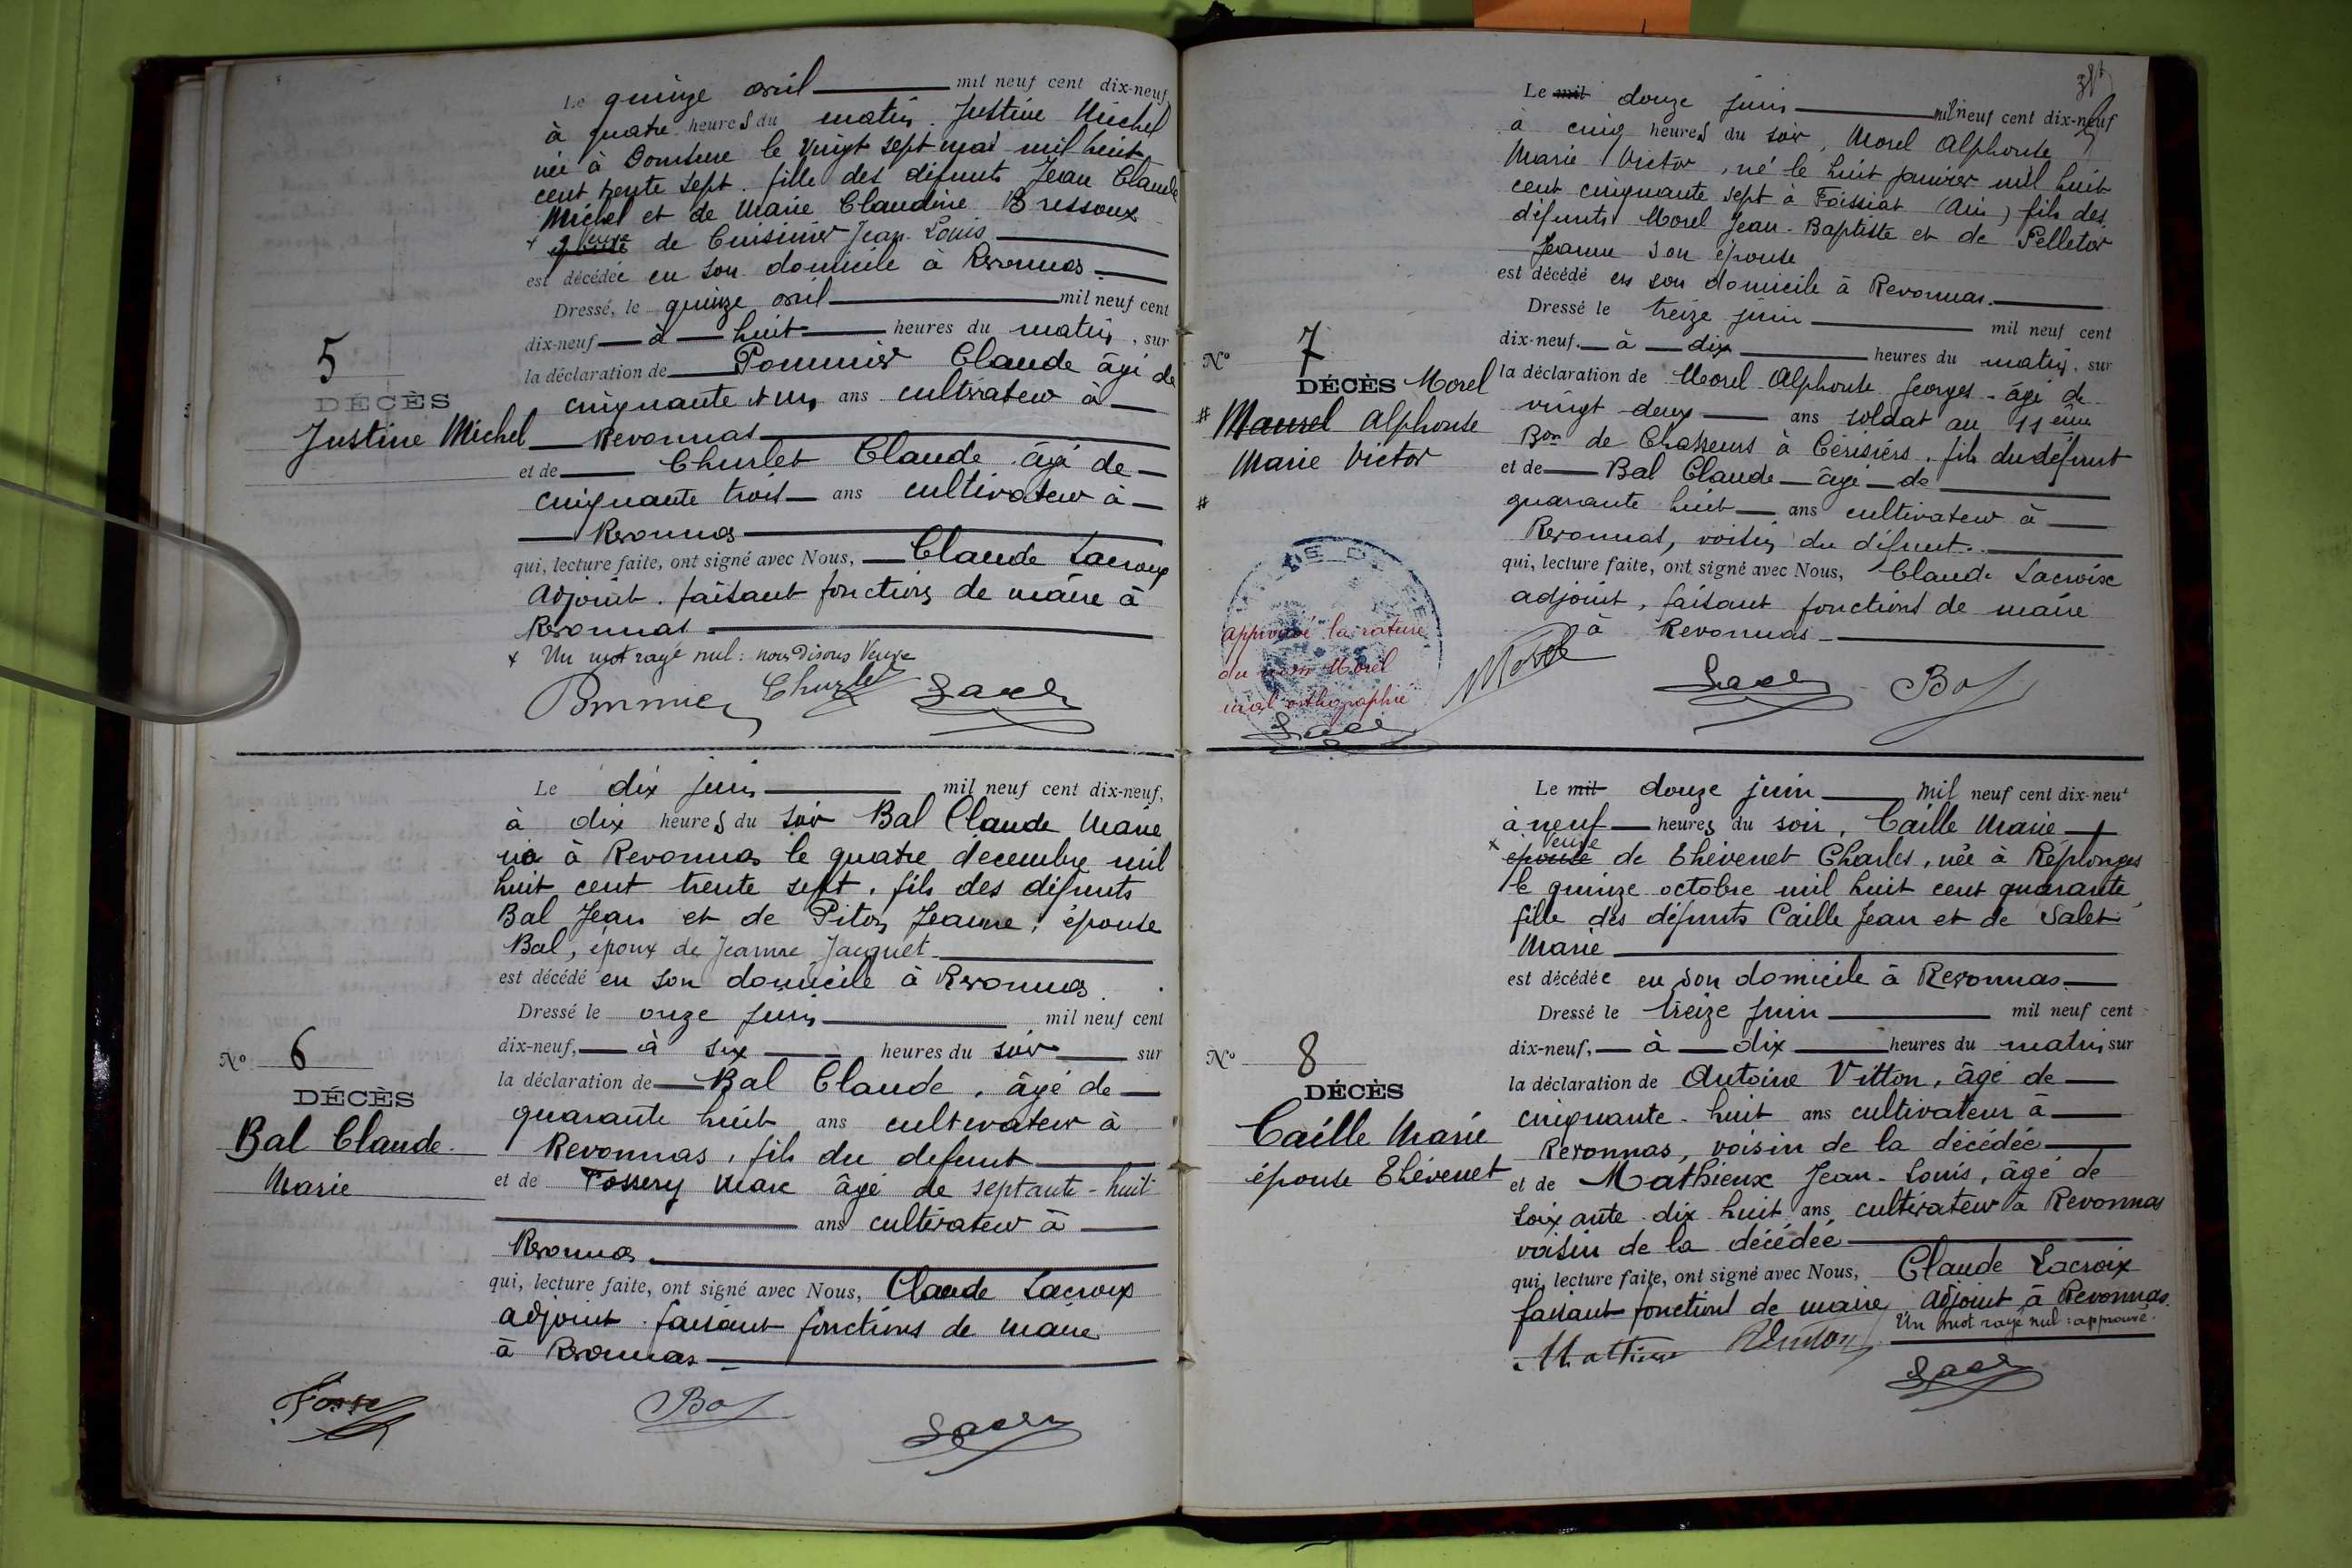 Le quinze avril mil neuf cent dix-neuf
à quatre heures du matin. Justine Michel
née à Domsure le vingt sept mai mil huit
cent trente sept. fille des défunts Jean Claude
Michel et de Marie Claudine Bressoux
+ épouse veuve de Cuisinier Jean-Louis
est décédée en son domicile à Revonnas
Dressé, le quinze avril mil neuf cent
dix-neuf à huit heures du matin, sur
la déclaration de Pommier Claude âgé de
cinquante et un ans cultivateur à
Revonnas
et de Churlet Claude âgé de
cinquante trois ans cultivateur à
Revonnas
qui, lecture faite, ont signé avec Nous, Claude Lacroix
adjoint. faisant fonctions de maire à
Revonnas
+ Un mot rayé nul : nous disons Veuve
Pommier Churlet Lacroix
5
DÉCÈS
Justine Michel
Le dix juin mil neuf cent dix-neuf,
à dix heures du soir Bal Claude Marie
né à Revonnas le quatre décembre mil
huit cent trente sept. fils des défunts
Bal Jean et de Piton Jeanne, épouse
Bal, époux de Jeanne Jacquet
est décédé en son domicile à Revonnas.
Dressé le onze juin mil neuf cent
dix-neuf, à six heures du soir sur
la déclaration de Bal Claude, âgé de
quarante huit ans cultivateur à
Revonnas, fils du défunt
et de Fossery Marc âgé de septante-huit
ans cultivateur à
Revonnas.
qui, lecture faite, ont signé avec Nous, Claude Lacroix
adjoint. faisant fonctions de maire
à Revonnas
Bal Lacroix
No 6
DÉCÈS
Bal Claude
Marie
Le mil douze juin mil neuf cent dix-neuf
à cinq heures du soir, Morel Alphonse
Marie Victor, né le huit janvier mil huit
cent cinquante sept à Foissiat (Ain) fils des
défunts Morel Jean-Baptiste et de Pelletor
Jeanne son épouse
est décédé en son domicile à Revonnas.
Dressé le treize juin mil neuf cent
dix-neuf. à dix heures du matin, sur
la déclaration de Morel Alphonse Georges. âgé de
vingt-deux ans soldat au 11ème
Bon de Chasseurs à Cérisiers. fils du défunt
et de Bal Claude âgé de
quarante huit ans cultivateur à
Revonnas, voisin du défunt.
qui, lecture faite, ont signé avec Nous, Claude Lacroix
adjoint, faisant fonctions de maire
à Revonnas
Morel Lacroix Bal
No 7
DÉCÈS Morel
# Mausel Alphonse
Marie Victor
#
approuvé la rature
du nom Morel
mal orthographié
Lacroix
Le mil douze juin mil neuf cent dix-neuf
à neuf heures du soir, Caille Marie +
+ épouse Veuve de Thévenet Charles, née à Replonges
le quinze octobre mil huit cent quarante,
fille des défunts Caille Jean et de Salet
Marie
est décédée en son domicile à Revonnas
Dressé le treize Juin mil neuf cent
dix-neuf, à dix heures du matin sur
la déclaration de Antoine Vitton, âgé de
cinquante-huit ans cultivateur à
Revonnas, voisin de la décédée
et de Mathieux Jean-Louis, âgé de
soixante dix huit ans cultivateur à Revonnas
voisin de la décédée
qui, lecture faite, ont signé avec Nous, Claude Lacroix
faisant fonctions de maire, adjoint à Revonnas.
Un mot rayé nul : approuvé.
Lacroix
No 8
DÉCÈS
Caille Marie
épouse Thévenet